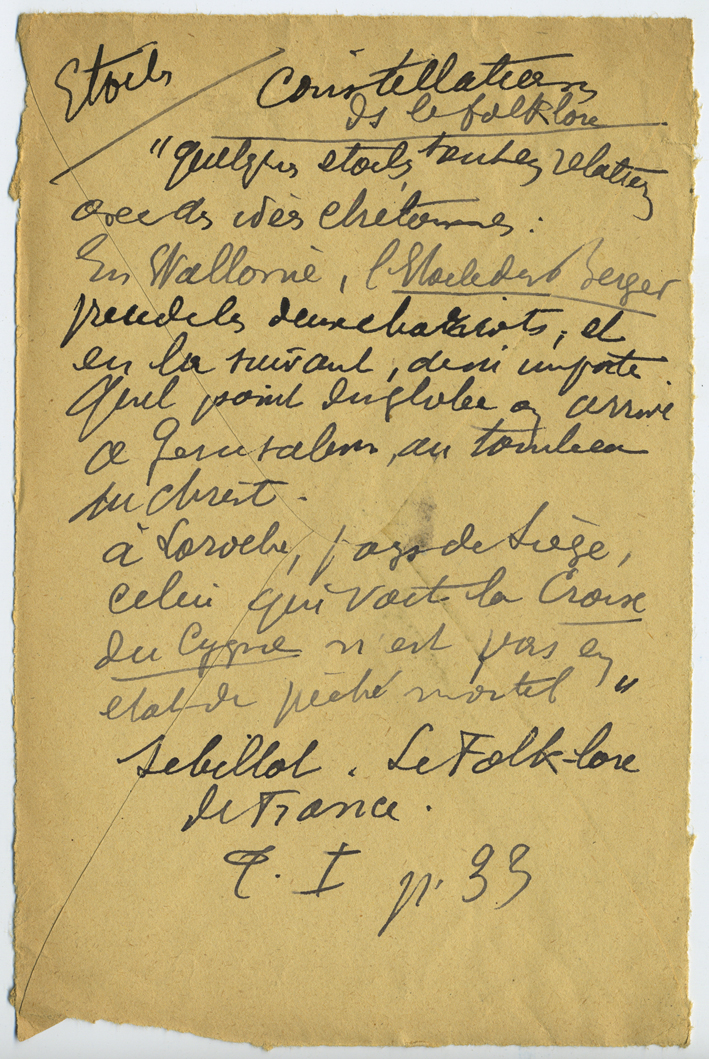 Etoiles
Constellations
ds le folklore
"quelques etoiles sont en relation
avec des idées chrétiennes :
En Wallonie, l'Etoile du Berger
précède les deux chariots, et
en la suivant, de n'importe
quel point du globe on arrive
a Jerusalem, au tombeau
du Christ.
à Laroche, pays de Liège,
celui qui voit la Croix
du Cygne n'est pas en
etat de péché mortel"
Sebillot. Le Folk-lore
de France.
T. I p. 33